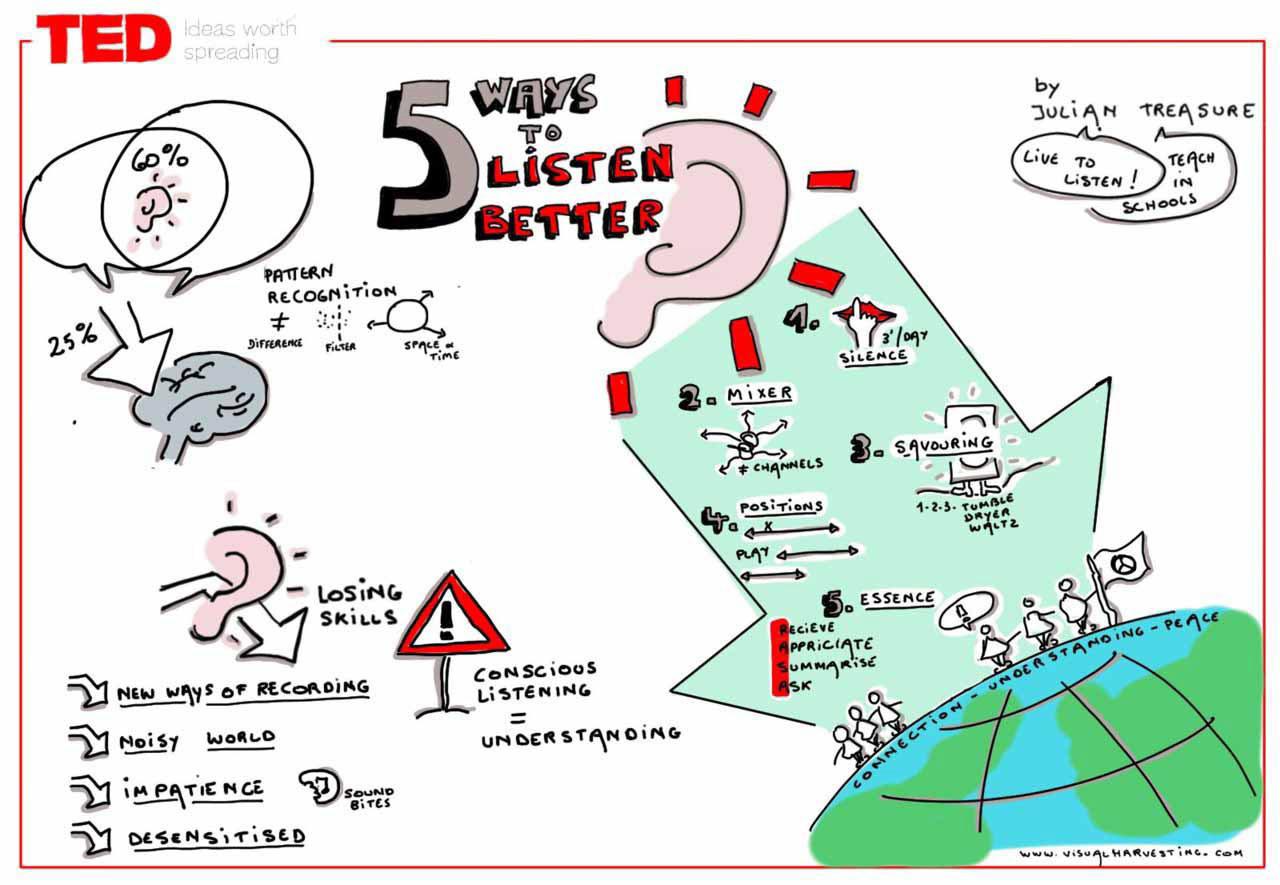 TED
Ideas worth
spreading
5 WAYS
TO
LISTEN
BETTER
by
JULIAN TREASURE
LIVE TO
LISTEN!
TEACH
IN
SCHOOLS
60%
25%
PATTERN
RECOGNITION
≠
DIFFERENCE
FILTER
SPACE &
TIME
1.
3'/DAY
SILENCE
2. MIXER
≠ CHANNELS
3. SAVOURING
1-2-3- TUMBLE
DRYER
WALTZ
4. POSITIONS
X
PLAY
5. ESSENCE
RECIEVE
APPRICIATE
SUMMARISE
ASK
!
LOSING
SKILLS
!
CONSCIOUS
LISTENING
=
UNDERSTANDING
NEW WAYS OF RECORDING
NOISY WORLD
IMPATIENCE
SOUND
BITES
DESENSITISED
CONNECTION - UNDERSTANDING - PEACE
WWW.VISUALHARVESTING.COM